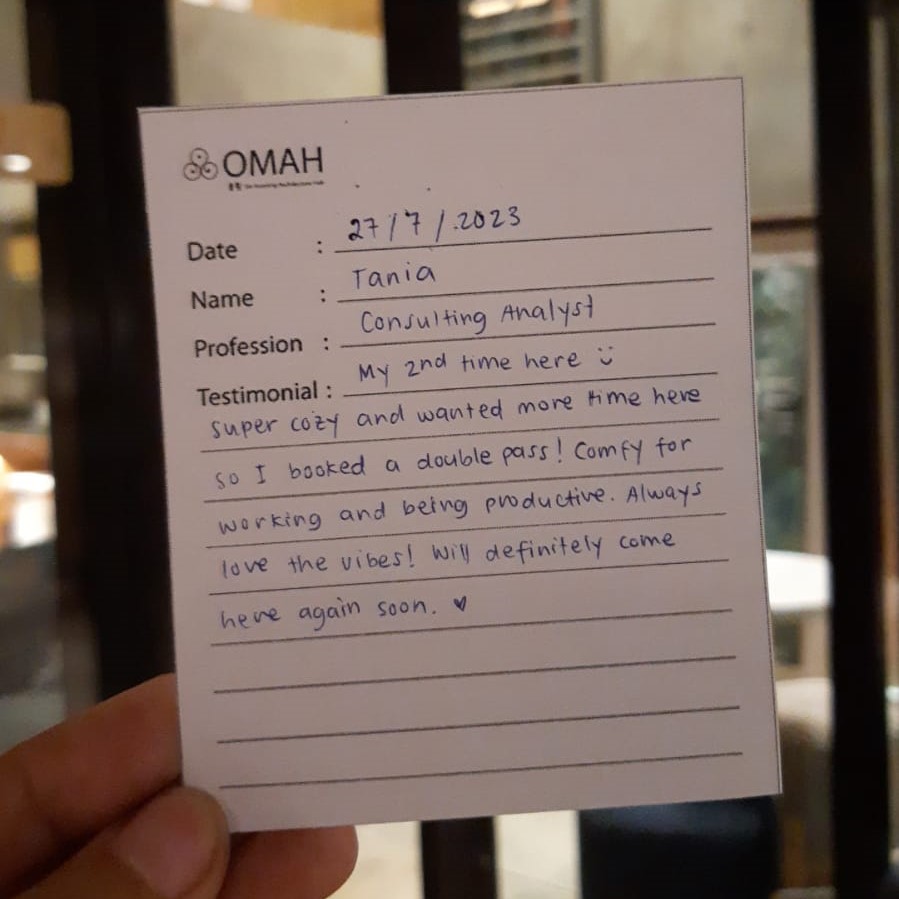 OMAH
Date : 27/7/.2023
Name : Tania
Profession : Consulting Analyst
Testimonial : My 2nd time here ü
super cozy and wanted more time here
so I booked a double pass! Comfy for
working and being productive. Always
love the vibes! Will definitely come
here again soon. ♥